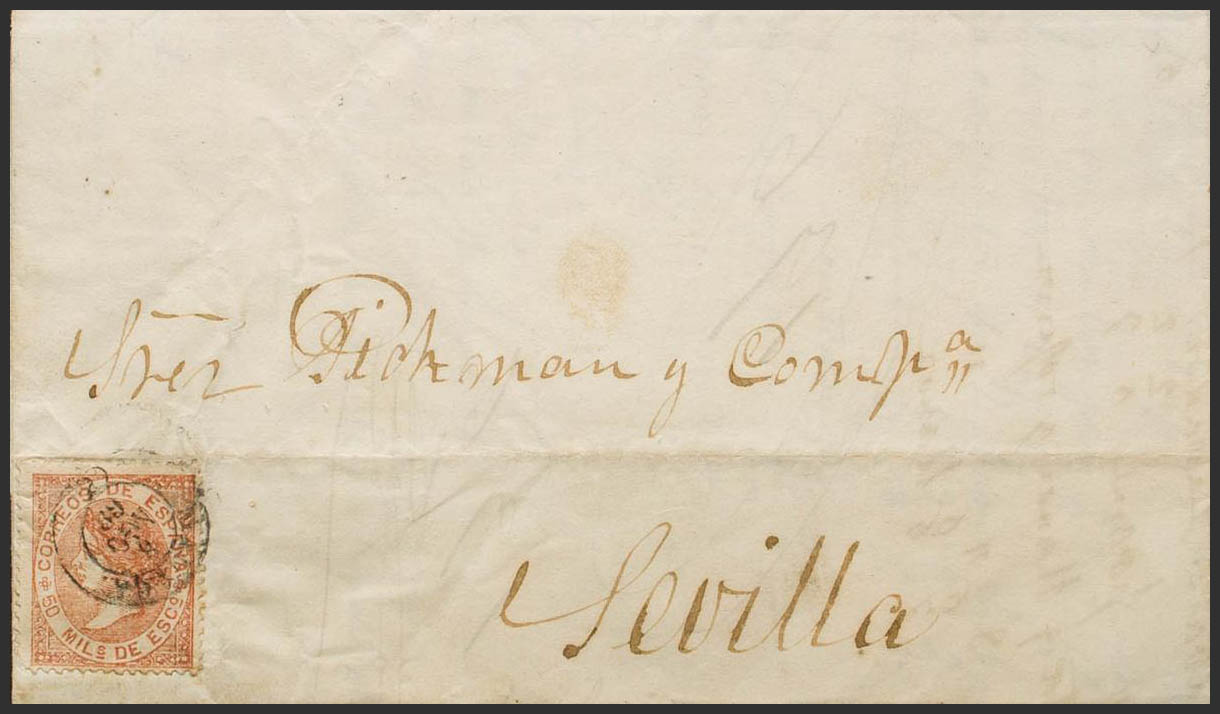 Sres Pickman y Compª
Sevilla
CORREOS DE ESPAÑA
50 MILS DE ESCO